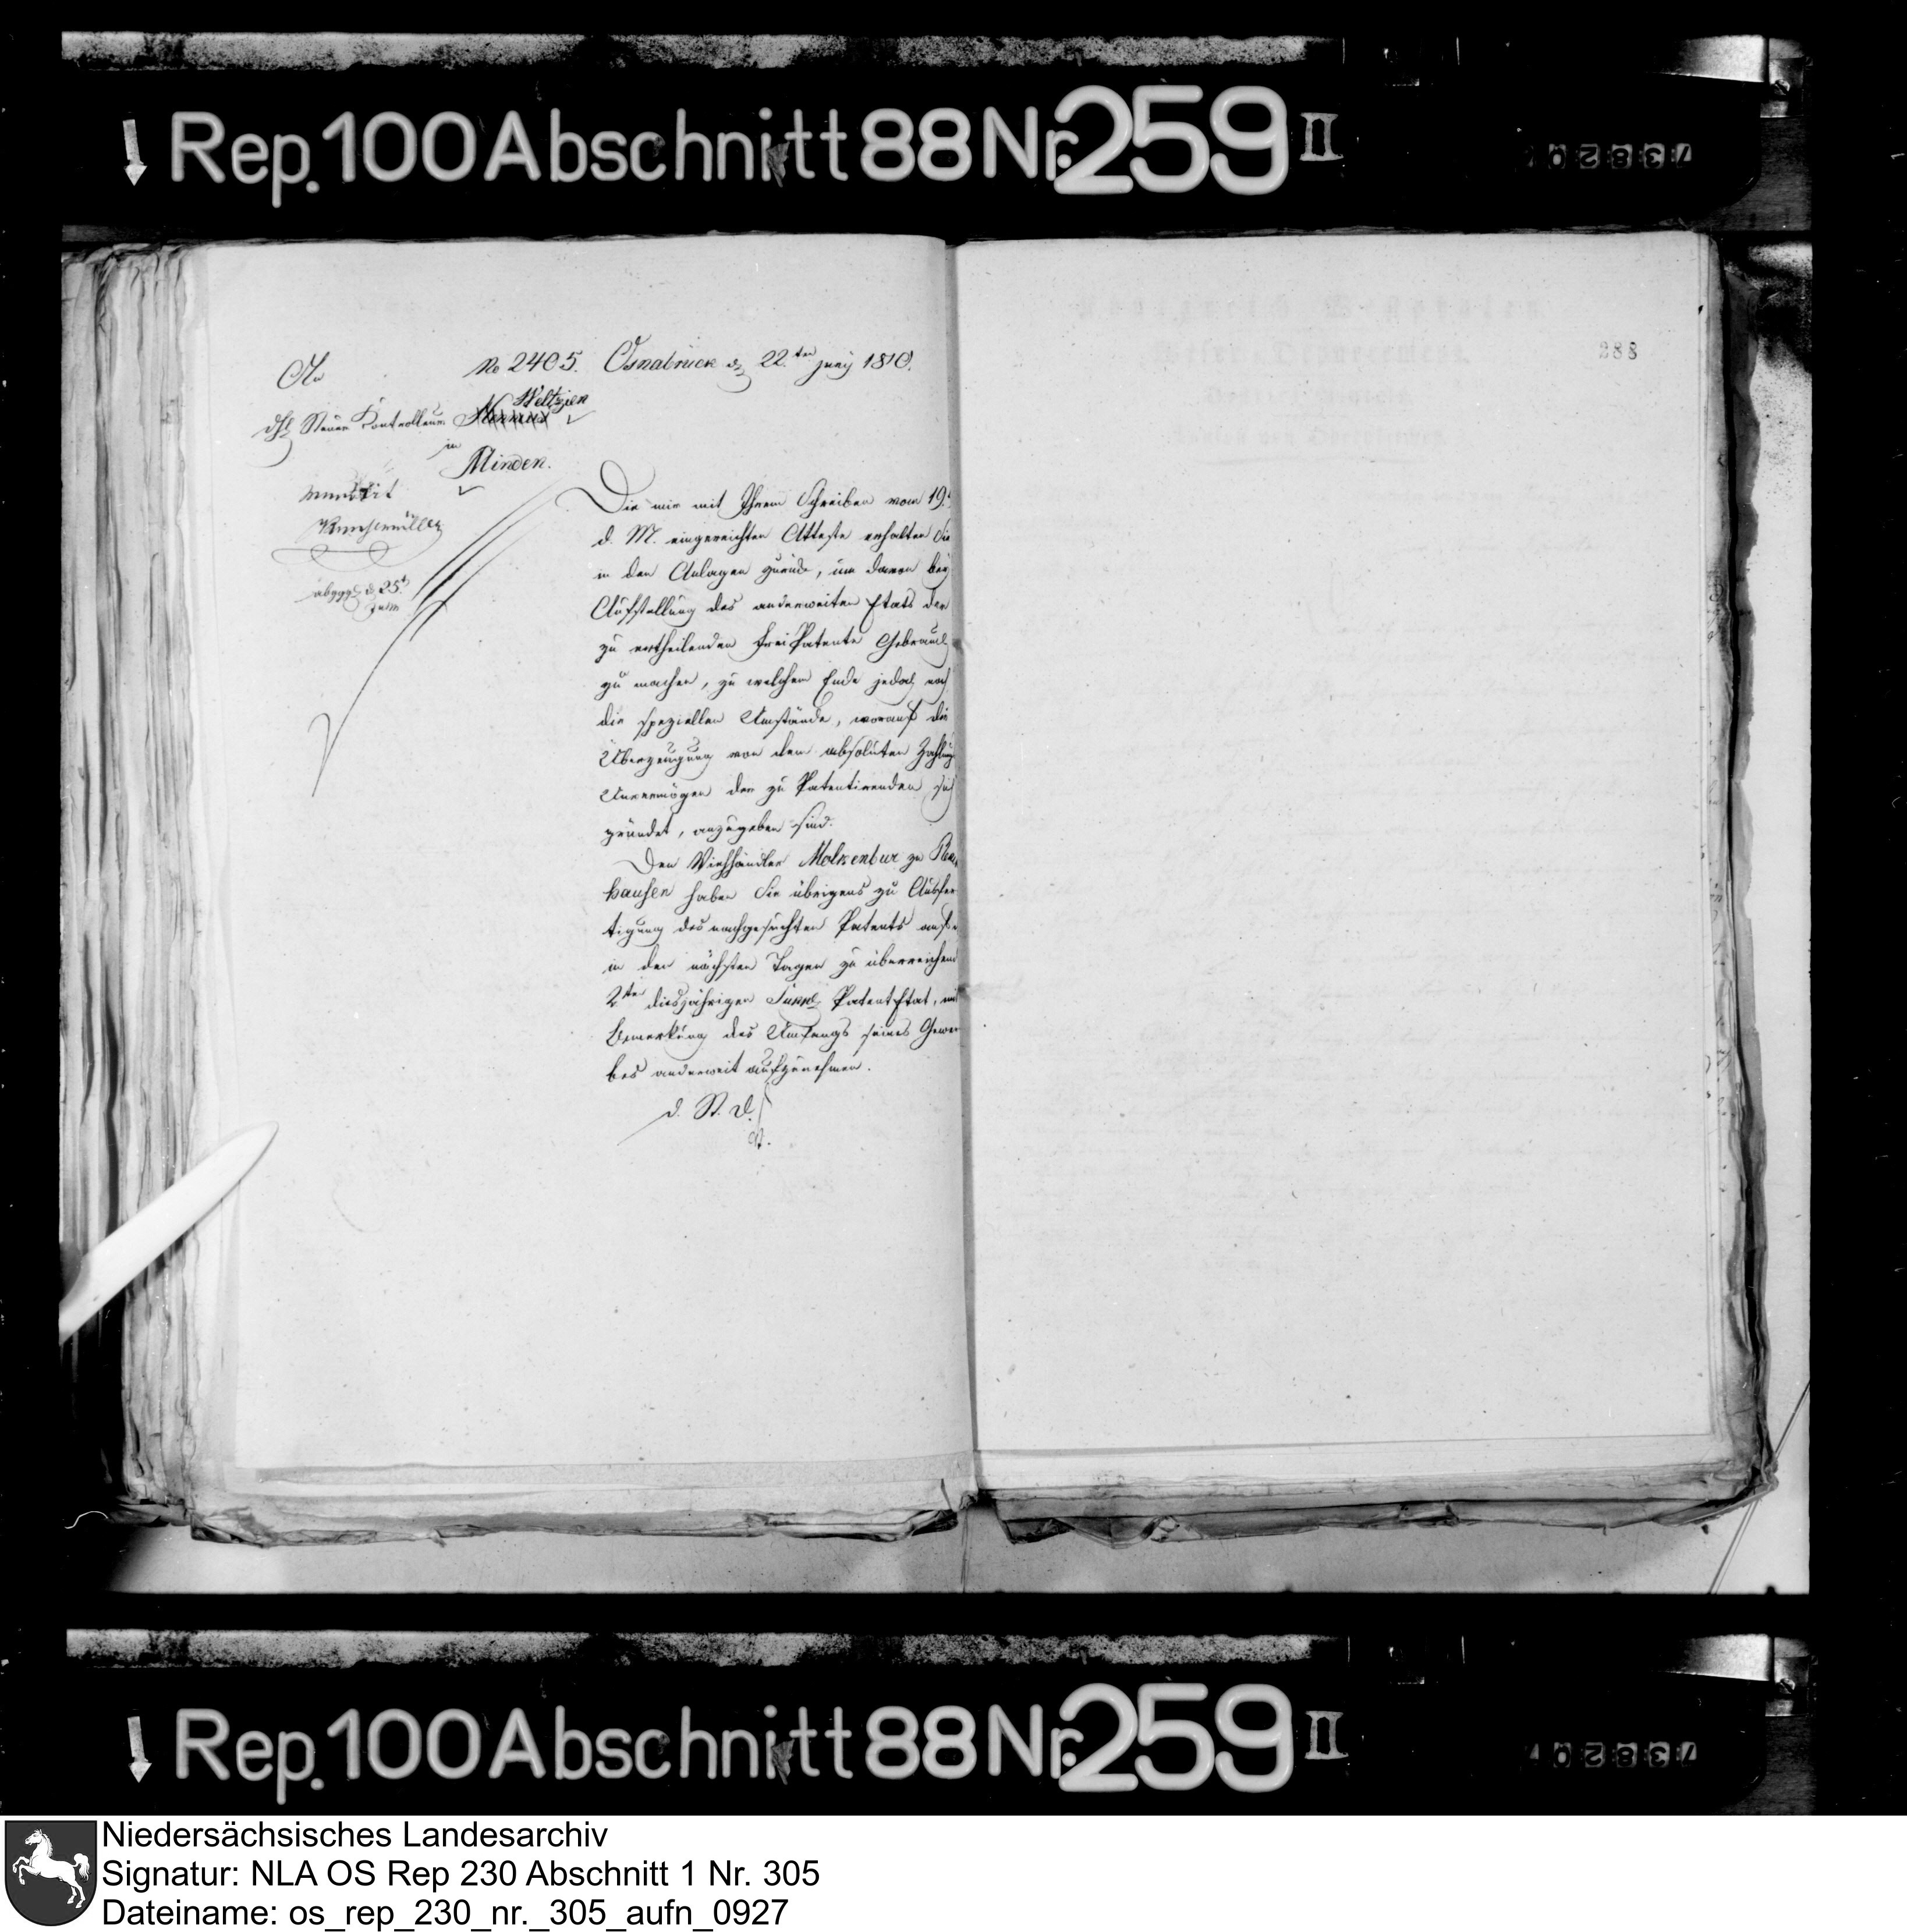 Rep. 100 Abschnitt 88 Nr. 259 II
An
No 2405. Osnabrück d 22ten Juny 1810.
Weltzien
Steuer Kontrolleur
in
Minden.
288
mundirt
Die mir mit Ihrem Schreiben vom 19t
d. M. eingereichten Atteste erhalten Sie
in den Anlagen zurück, um davon bey
Aufstellung des anderweiten Etats der
zu ertheilenden FreiPatente Gebrauch
zu machen, zu welchem Ende jedoch noch
die speziellen Umstände, worauf die
Überzeugung von dem absoluten Zahlungs
Unvermögen der zu Patentirenden sich
gründet, anzugeben sind.
Den Viehhändler Molkenbur zu
hausen haben Sie übrigens zu Ausfer
tigung des nachgesuchten Patents
in den nächsten Tagen zu überreichend
2ten diesjährigen Suppl. PatentEtat, mit
Bemerkung des Umfangs seines Gewer
bes anderweit aufzunehmen.
d. St. D.
abggg d 25t
Juni
Rep. 100 Abschnitt 88 Nr. 259 II
Niedersächsisches Landesarchiv
Signatur: NLA OS Rep 230 Abschnitt 1 Nr. 305
Dateiname: os_rep_230_nr._305_aufn_0927